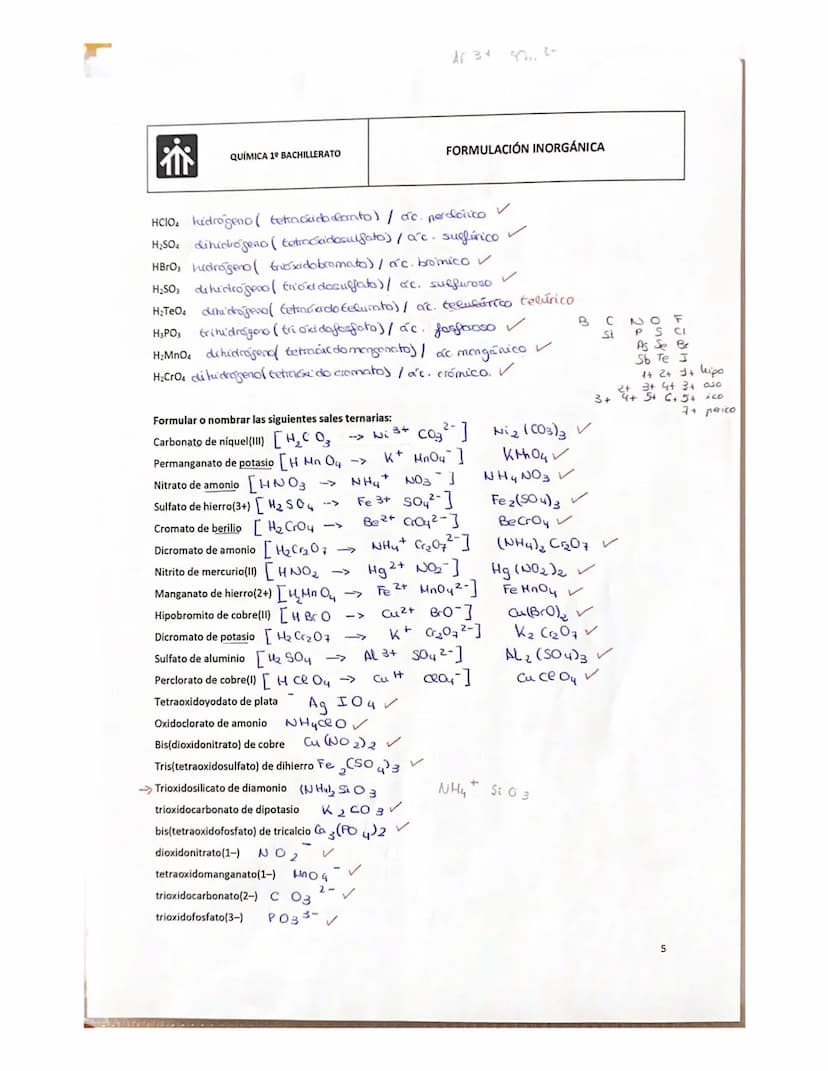 Al 3+ SO₄ 2-
QUÍMICA 1º BACHILLERATO
FORMULACIÓN INORGÁNICA
HClO₄ hidrógeno( tetraóxidoclorato) / ác. perclórico ✓
H₂SO₄ dihidrógeno( tetraóxidosulfato) / ác. sulfúrico ✓
HBrO₃ hidrógeno( trióxidobromato) / ác. brómico ✓
H₂SO₃ dihidrógeno( trióxidosulfato) / ác. sulfuroso ✓
H₂TeO₄ dihidrógeno( tetraóxidotelurato) / ác. telúrico
H₃PO₃ trihidrógeno (trióxidofosfato) / ác. fosforoso ✓
H₂MnO₄ dihidrógeno( tetraóxidomanganato) / ác mangánico ✓
H₂CrO₄ dihidrógeno( tetraóxidocromato) / ác. crómico. ✓
B C N O F
Si P S Cl
As Se Br
Sb Te I
1+ 2+ 1+ hipo
2+ 3+ 4+ 3+ oso
3+ 4+ 5+ 6+ 5+ ico
7+ per ico
Formular o nombrar las siguientes sales ternarias:
Carbonato de níquel(III) [H₂CO₃ --> Ni³⁺ CO₃²⁻] Ni₂(CO₃)₃ ✓
Permanganato de potasio [HMnO₄ --> K⁺ MnO₄⁻] KMnO₄ ✓
Nitrato de amonio [HNO₃ --> NH₄⁺ NO₃⁻] NH₄NO₃ ✓
Sulfato de hierro(3+) [H₂SO₄ --> Fe³⁺ SO₄²⁻] Fe₂(SO₄)₃ ✓
Cromato de berilio [H₂CrO₄ --> Be²⁺ CrO₄²⁻] BeCrO₄ ✓
Dicromato de amonio [H₂Cr₂O₇ --> NH₄⁺ Cr₂O₇²⁻] (NH₄)₂Cr₂O₇ ✓
Nitrito de mercurio(II) [HNO₂ --> Hg²⁺ NO₂⁻] Hg(NO₂)₂ ✓
Manganato de hierro(2+) [H₂MnO₄ --> Fe²⁺ MnO₄²⁻] FeMnO₄ ✓
Hipobromito de cobre(II) [HBrO --> Cu²⁺ BrO⁻] Cu(BrO)₂ ✓
Dicromato de potasio [H₂Cr₂O₇ --> K⁺ Cr₂O₇²⁻] K₂Cr₂O₇ ✓
Sulfato de aluminio [H₂SO₄ --> Al³⁺ SO₄²⁻] Al₂(SO₄)₃ ✓
Perclorato de cobre(I) [HClO₄ --> Cu¹⁺ ClO₄⁻] CuClO₄ ✓
Tetraoxidoyodato de plata - AgIO₄ ✓
Oxidoclorato de amonio NH₄ClO ✓
Bis(dioxidonitrato) de cobre Cu(NO₂)₂ ✓
Tris(tetraoxidosulfato) de dihierro Fe₂(SO₄)₃ ✓
→ Trioxidosilicato de diamonio (NH₄)₂SiO₃ NH₄⁺ SiO₃
trioxidocarbonato de dipotasio K₂CO₃ ✓
bis(tetraoxidofosfato) de tricalcio Ca₃(PO₄)₂ ✓
dioxidonitrato(1–) NO₂⁻ ✓
tetraoxidomanganato(1–) MnO₄⁻ ✓
trioxidocarbonato(2–) CO₃²⁻ ✓
trioxidofosfato(3–) PO₃³⁻ ✓
5